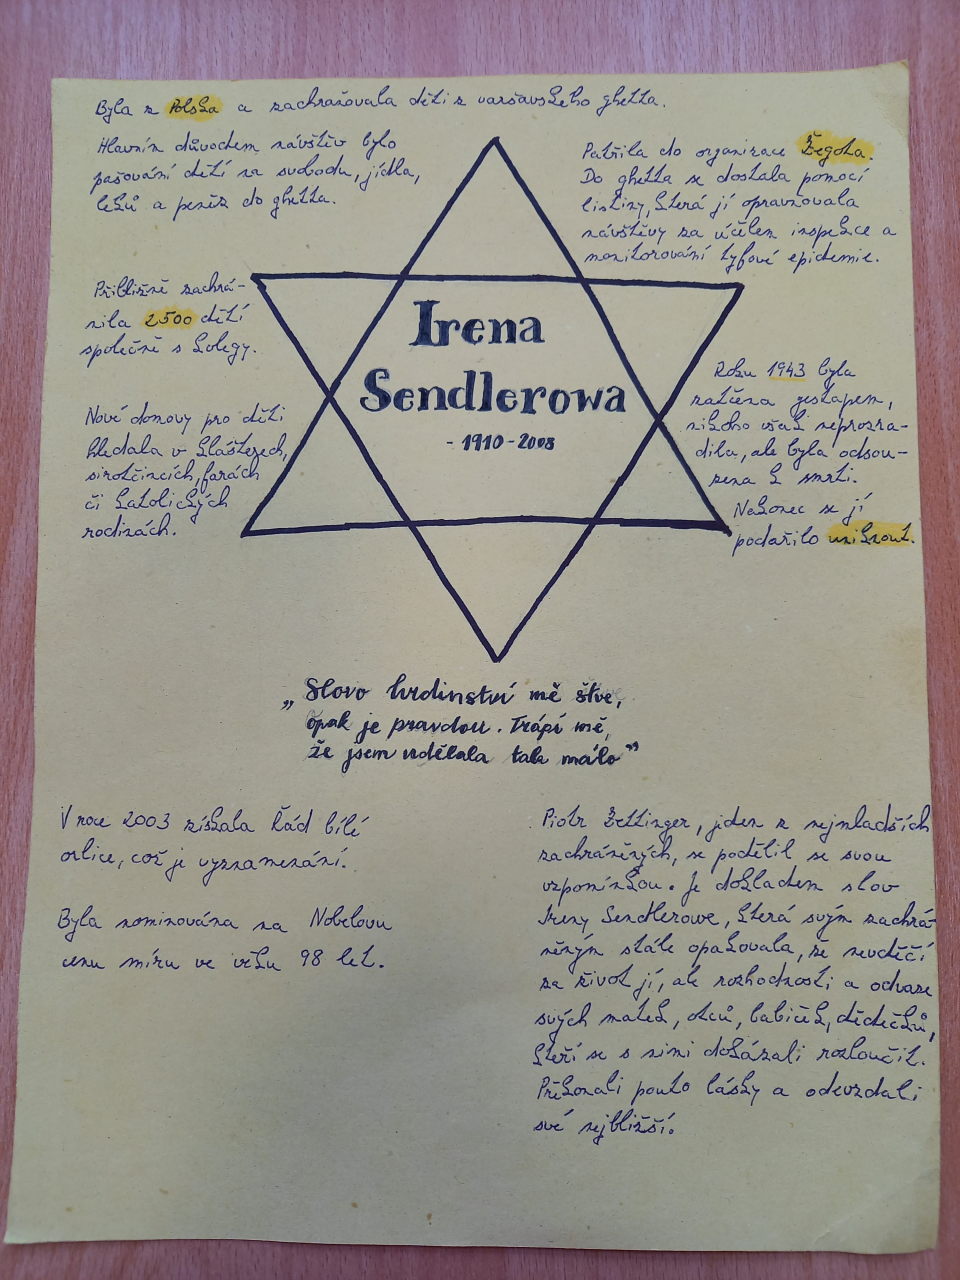 Byla z Polska a zachraňovala děti z varšavského ghetta.
Hlavním důvodem návštěv bylo
pašování dětí na svobodu, jídla,
léků a peněz do ghetta.
Patřila do organizace Żegota.
Do ghetta se dostala pomocí
listiny, která jí opravňovala
návštěvy za účelem inspekce a
monitorování tyfové epidemie.
Přibližně zachrá-
nila 2500 dětí
společně s kolegy.
Nové domovy pro děti
hledala v klášterech,
sirotčincích, farách
či katolických
rodinách.
Irena
Sendlerowa
- 1910 - 2008
Roku 1943 byla
zatčena gestapem,
nikoho však neprozra-
dila, ale byla odsou-
zena k smrti.
Nakonec se jí
podařilo uniknout.
„Slovo hrdinství mě štve,
opak je pravdou. Trápí mě,
že jsem udělala tak málo”
V roce 2003 získala Řád bílé
orlice, což je vyznamenání.
Byla nominována na Nobelovu
cenu míru ve věku 98 let.
Piotr Zettinger, jeden z nejmladších
zachráněných, se podělil se svou
vzpomínkou. Je dokladem slov
Ireny Sendlerowe, která svým zachrá-
něným stále opakovala, že nevděčí
za život jí, ale rozhodnosti a odvaze
svých matek, otců, babiček, dědečků,
kteří se s nimi dokázali rozloučit.
Překonali pouto lásky a odevzdali
své nejbližší.